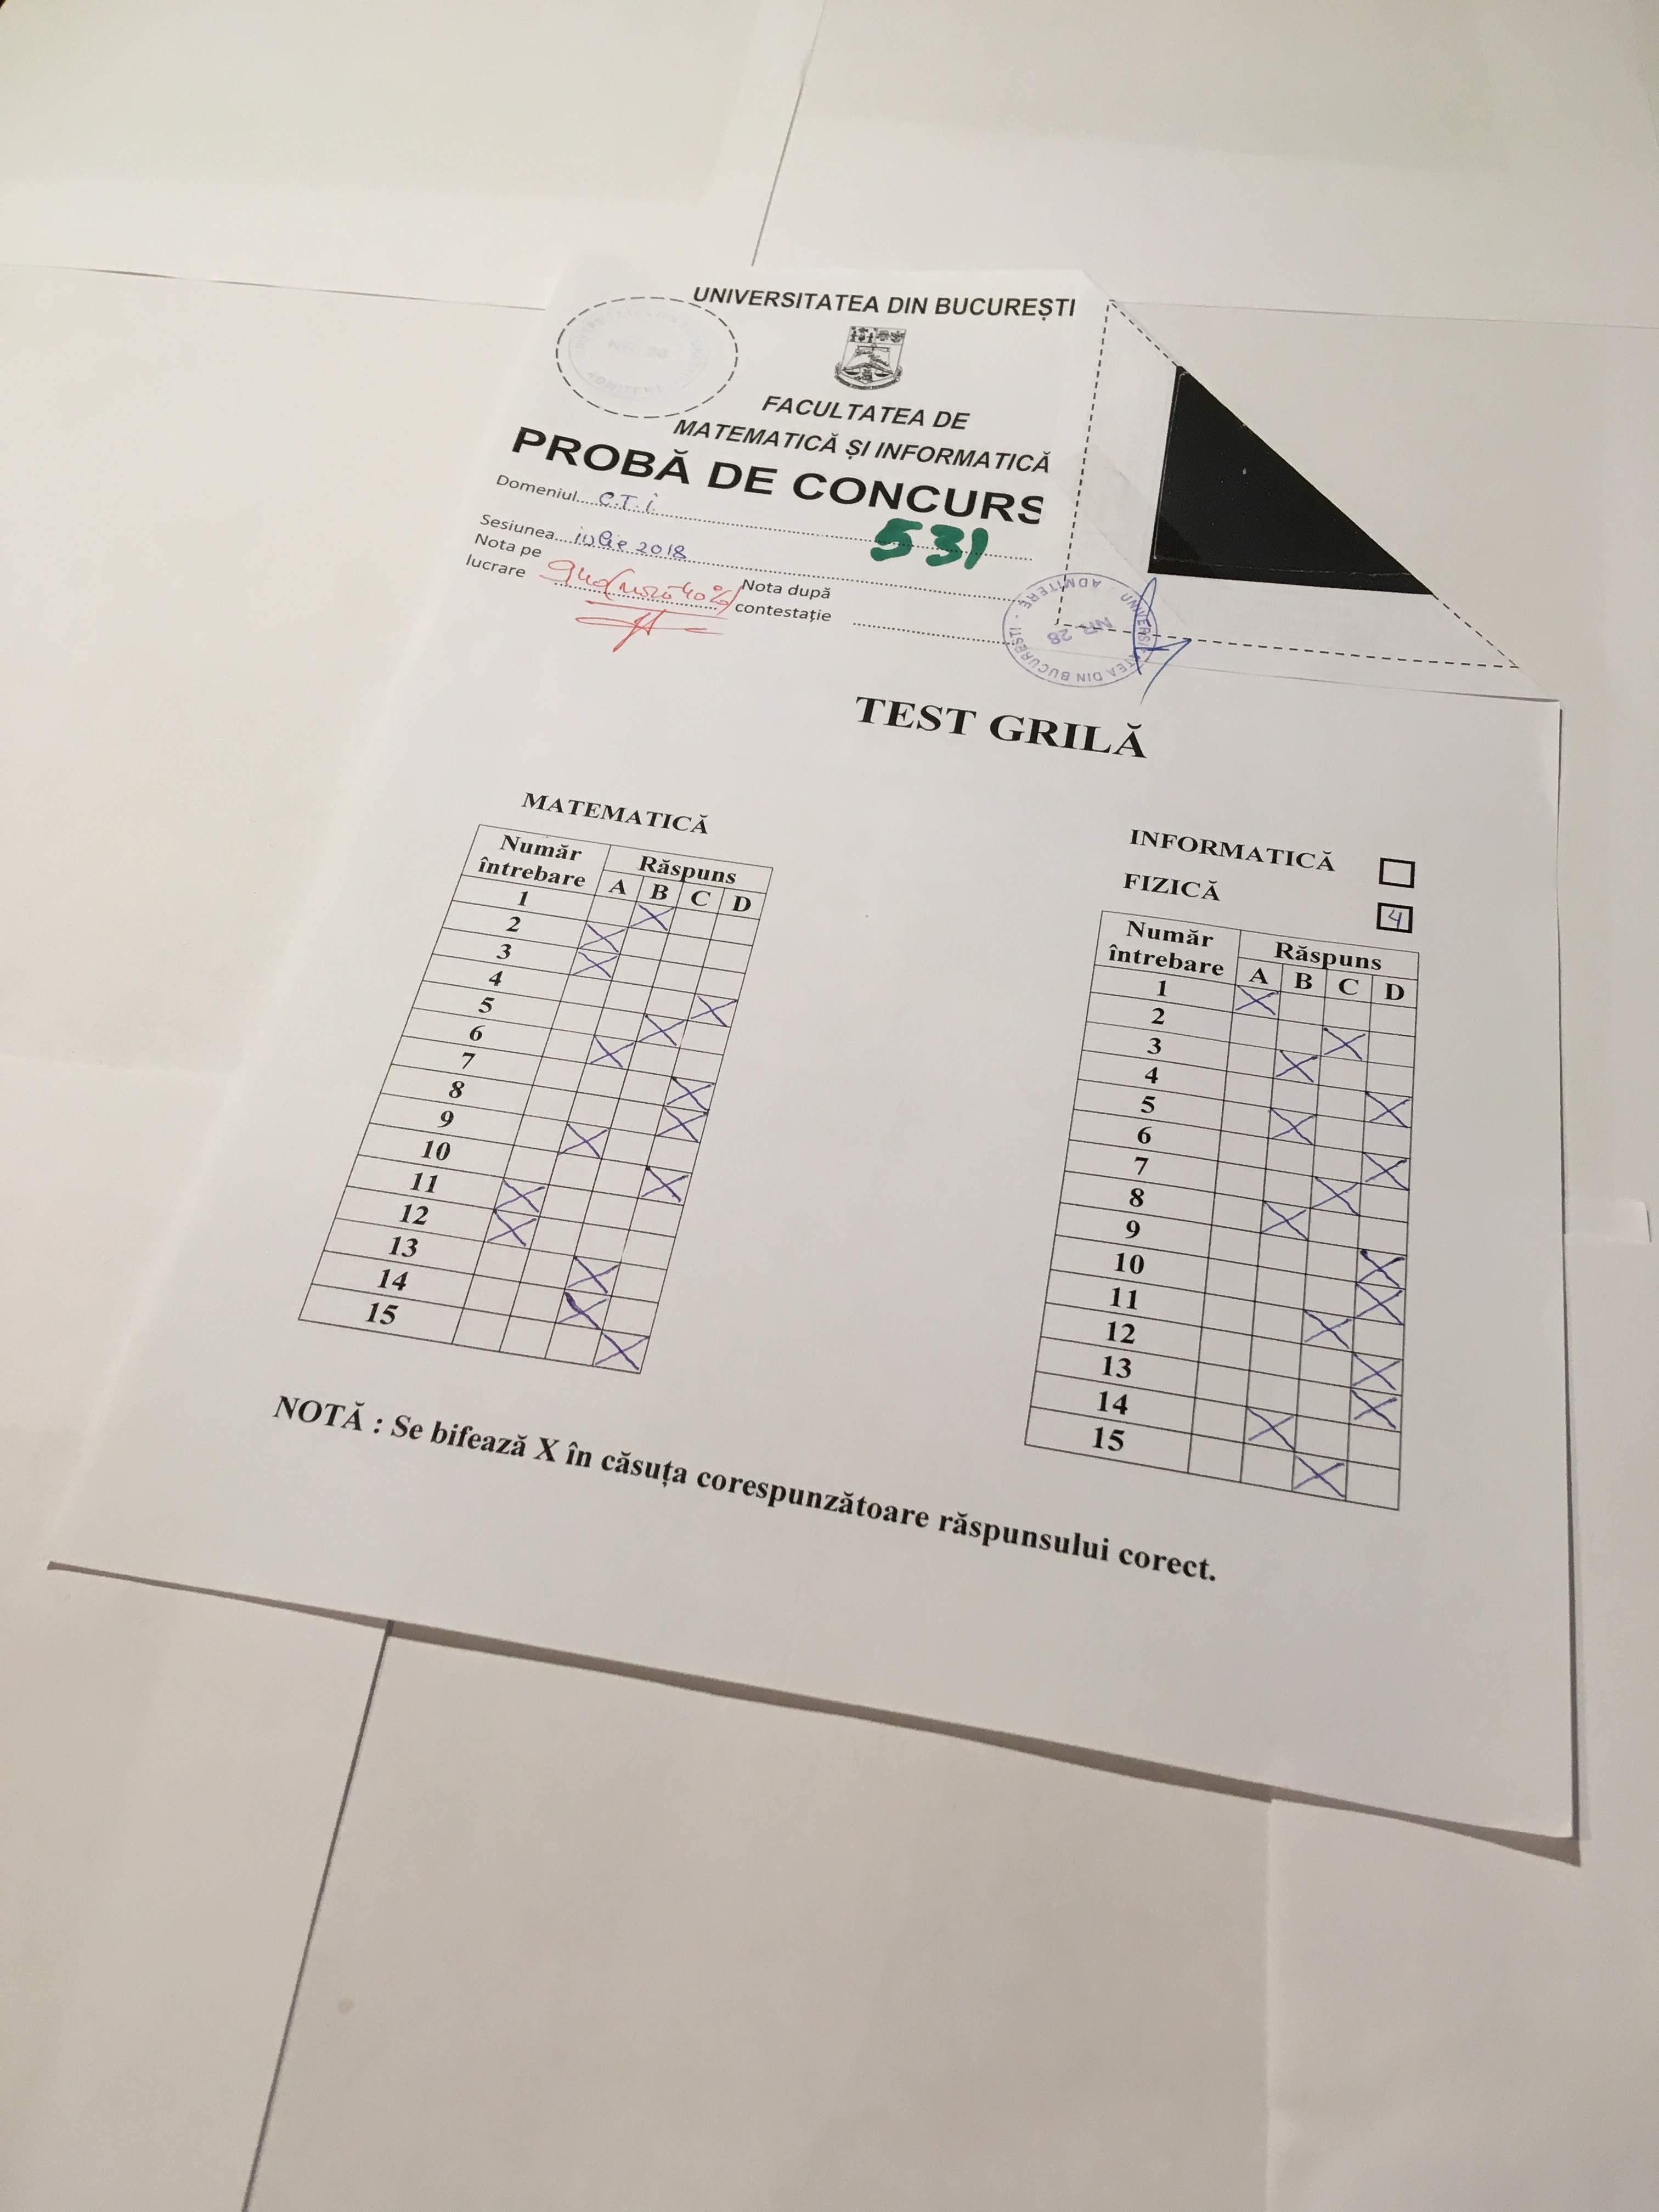 UNIVERSITATEA DIN BUCUREȘTI
FACULTATEA DE
MATEMATICĂ ȘI INFORMATICĂ
PROBĂ DE CONCURS
Domeniul C.T.i.
531
Sesiunea iulie 2018
Nota pe
lucrare
Nota după
contestație
UNIVERSITATEA DIN BUCUREȘTI · ADMITERE ·
NR 28
TEST GRILĂ
MATEMATICĂ
Număr întrebare Răspuns
A B C D
1 X
2 X
3 X
4
5 X
6 X
7 X
8 X
9 X
10 X
11 X
12 X
13 X
14 X
15 X
INFORMATICĂ
FIZICĂ 4
Număr întrebare Răspuns
A B C D
1 X
2 X
3 X
4 X
5 X
6 X
7 X
8 X
9 X
10 X
11 X
12 X
13 X
14 X
15 X
NOTĂ : Se bifează X în căsuța corespunzătoare răspunsului corect.